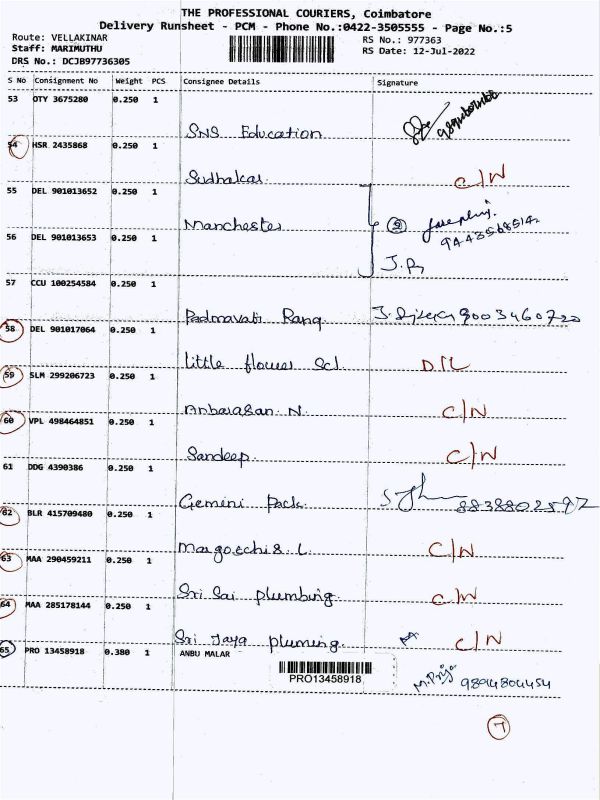 THE PROFESSIONAL COURIERS, Coimbatore
Delivery Runsheet - PCM - Phone No.:0422-3505555 - Page No.:5
Route: VELLAKINAR
Staff: MARIMUTHU
DRS No.: DCJB97736305
RS No.: 977363
RS Date: 12-Jul-2022
S No Consignment No Weight PCS Consignee Details Signature
53 OTY 3675280 0.250 1
SNS Education
54 HSR 2435868 0.250 1
Sudhakar C/N
55 DEL 901013652 0.250 1
Manchester
56 DEL 901013653 0.250 1
57 CCU 100254584 0.250 1
Padmavati Rang 9003460720
58 DEL 901017064 0.250 1
little flower Scl. D/L
59 SLM 299206723 0.250 1
Anbarasan. N. C/N
60 VPL 498464851 0.250 1
Sandeep. C/N
61 DDG 4390386 0.250 1
Gemini Pack 8838802592
62 BLR 415709480 0.250 1
C/N
63 MAA 290459211 0.250 1
Sri Sai plumbing. C/N
64 MAA 285178144 0.250 1
Sri Jaya pluming. C/N
65 PRO 13458918 0.380 1 ANBU MALAR
PRO13458918
M. Priya 9894804454
7